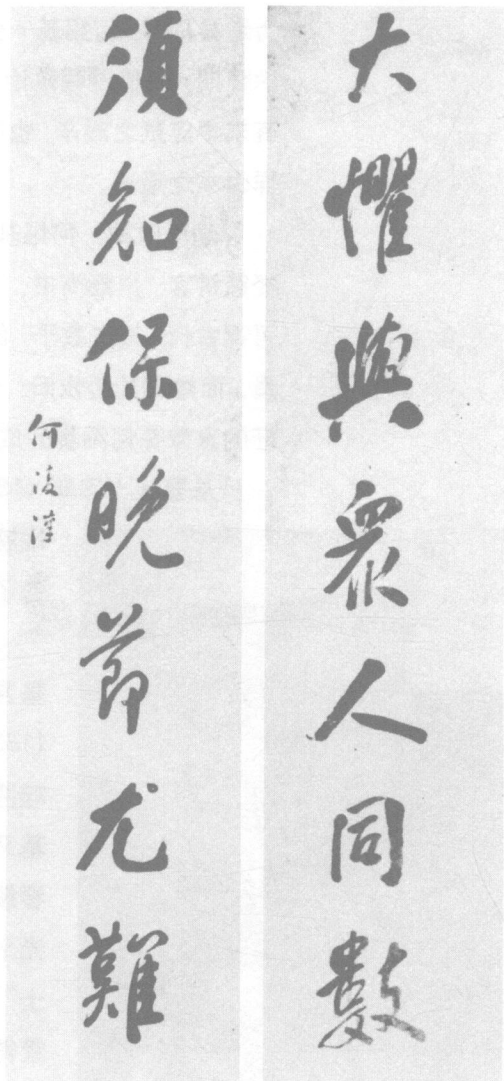 大懼與衆人同敷
須知保晚節尤難
何淩漢